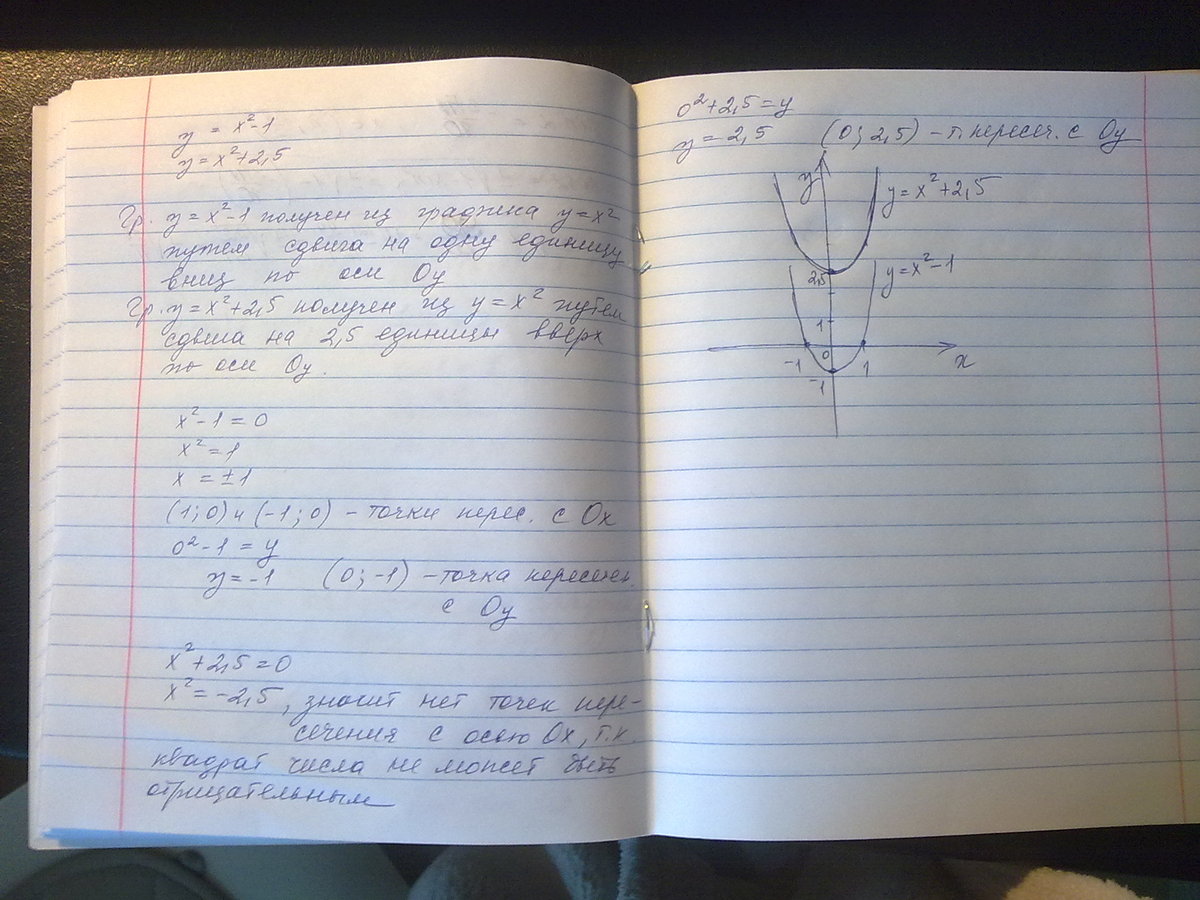 y = x² - 1
y = x² + 2,5
Гр. y = x² - 1 получен из графика y = x²
путем сдвига на одну единицу
вниз по оси Oy
Гр. y = x² + 2,5 получен из y = x² путем
сдвига на 2,5 единицы вверх
по оси Oy.
x² - 1 = 0
x² = 1
x = ±1
(1; 0) и (-1; 0) - точки перес. с Ox
0² - 1 = y
y = -1 (0; -1) - точка пересечен.
с Oy
x² + 2,5 = 0
x² = -2,5, значит нет точек пере-
сечения с осью Ox, т.к.
квадрат числа не может быть
отрицательным
0² + 2,5 = y
y = 2,5 (0; 2,5) - т. пересеч. с Oy
y
y = x² + 2,5
y = x² - 1
2,5
1
-1 0 1 x
-1